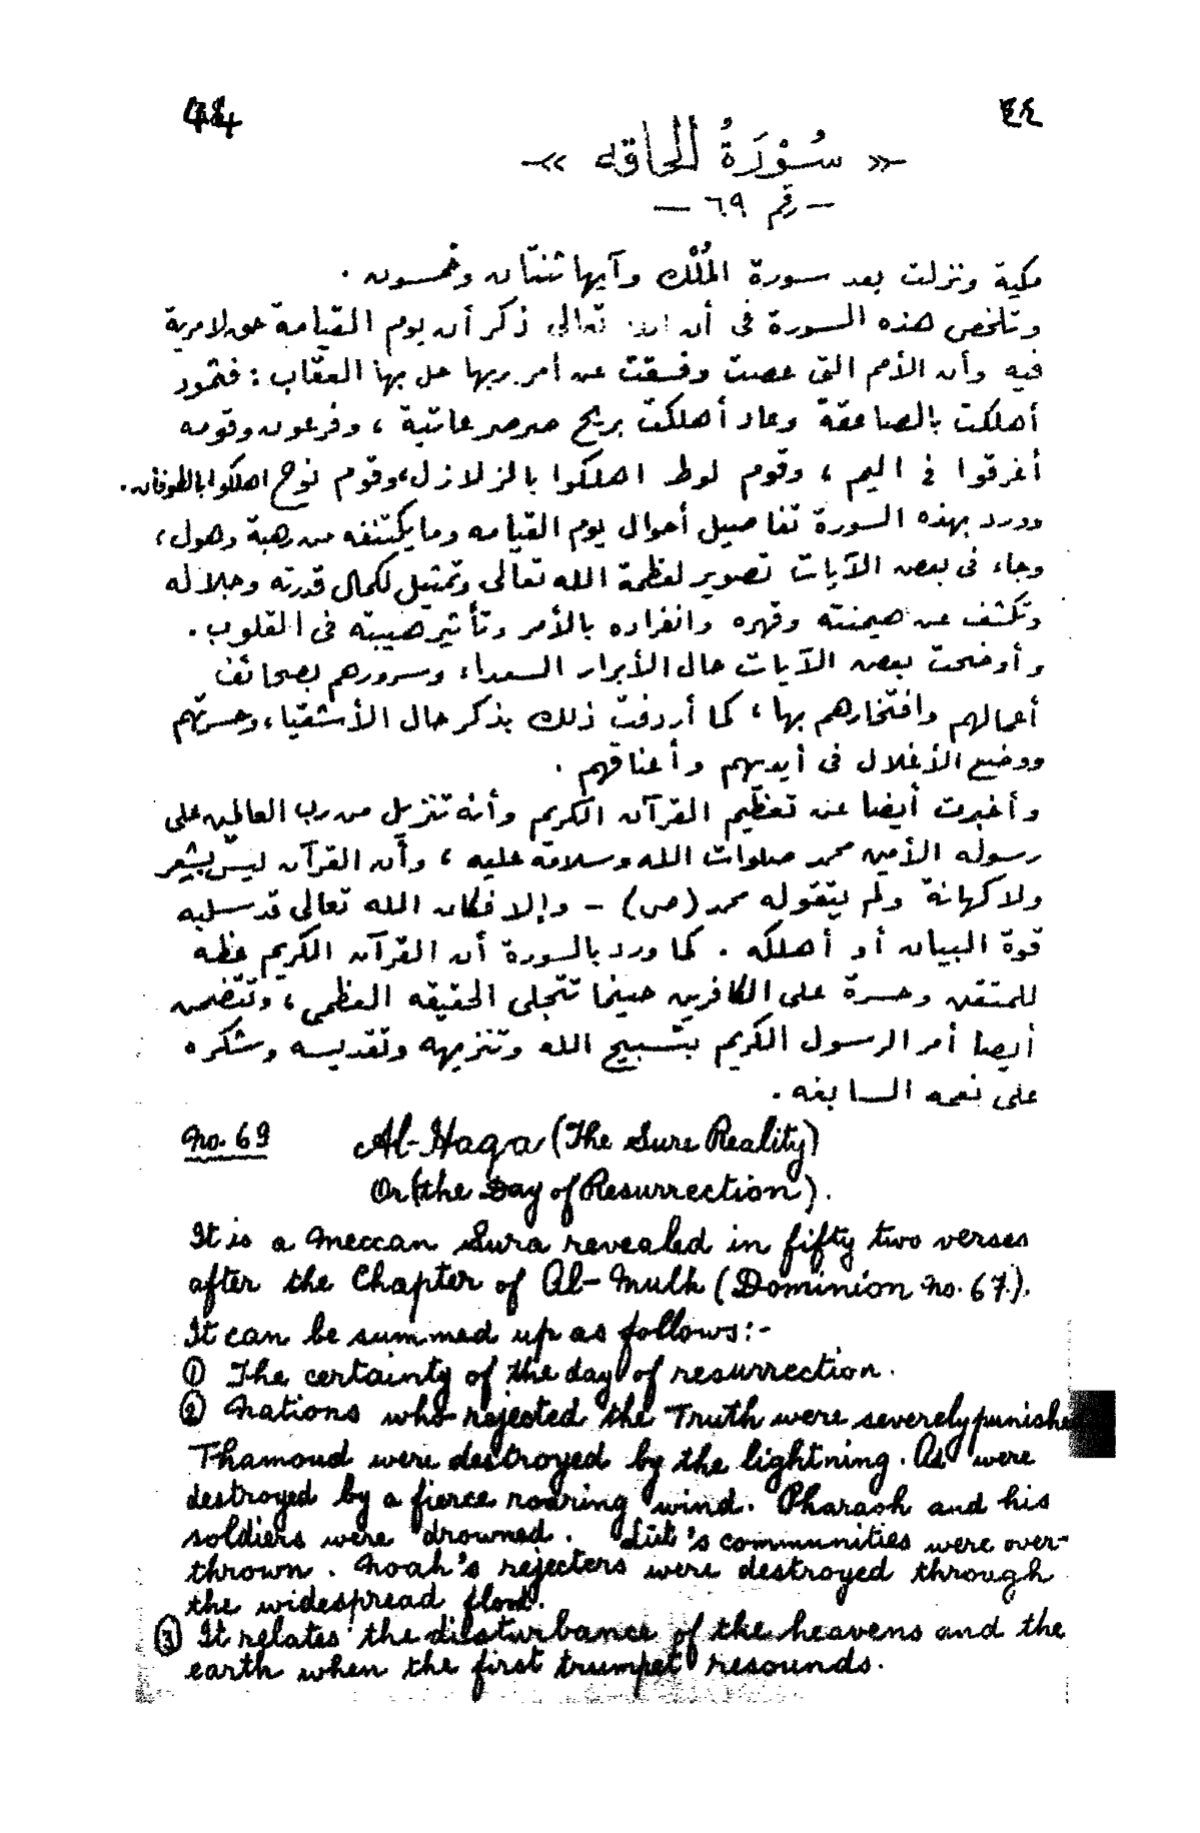 44 ٤٤
« سُوْرَةُ الحاقه »
— رقم ٦٩ —
مكية ونزلت بعد سورة المُلْك وآيها ثنتان وخمسون .
وتلخص هذه السورة فى أن الله تعالى ذكر أن يوم القيامة حق لامرية
فيه وأن الأمم التى عصت وفسقت عن أمر ربها حل بها العقاب : فثمود
أهلكت بالصاعقة وعاد أهلكت بريح صرصر عاتية ، وفرعون وقومه
أغرقوا فى اليم ، وقوم لوط اهلكوا بالزلازل، وقوم نوح اهلكوا بالطوفان .
وورد بهذه السورة تفاصيل أحوال يوم القيامه ومايكتنفه من رهبة وهول ،
وجاء فى بعض الآيات تصوير لعظمة الله تعالى وتمثيل لكمال قدرته وجلاله
وتكشف عن هيمنته وقهره وانفراده بالأمر وتأثير هيبته فى القلوب .
وأوضحت بعض الآيات حال الأبرار السعداء وسرورهم بصحائف
أعمالهم وافتخارهم بها ، كما أردفت ذلك بذكر حال الأشقياء وحسرتهم
ووضع الأغلال فى أيديهم وأعناقهم .
وأخبرت أيضا عن تعظيم القرآن الكريم وأنه تنزيل من رب العالمين على
رسوله الأمين محمد صلوات الله وسلامه عليه ، وأن القرآن ليس بشعر
ولا كهانة ولم يتقوله محمد (ص) - وإلا فكان الله تعالى قد سلبه
قوة البيان أو أهلكه . كما ورد بالسورة أن القرآن الكريم عظه
للمتقين وحسرة على الكافرين حينما تتجلى الحقيقه العظمى ، وتتضمن
أيضا أمر الرسول الكريم بتسبيح الله وتنزيهه وتقديسه وشكره
على نعمه السابغه .
No. 69 Al-Haqa (The Sure Reality)
Or (the Day of Resurrection).
It is a Meccan Sura revealed in fifty two verses
after the Chapter of Al-Mulk (Dominion No. 67.).
It can be summed up as follows:-
① The certainty of the day of resurrection.
② Nations who rejected the Truth were severely punishe
Thamoud were destroyed by the lightning. Ad were
destroyed by a fierce roaring wind. Pharaoh and his
soldiers were drowned. Lūt's communities were over-
thrown. Noah's rejecters were destroyed through
the widespread flood.
③ It relates the disturbance of the heavens and the
earth when the first trumpet resounds.